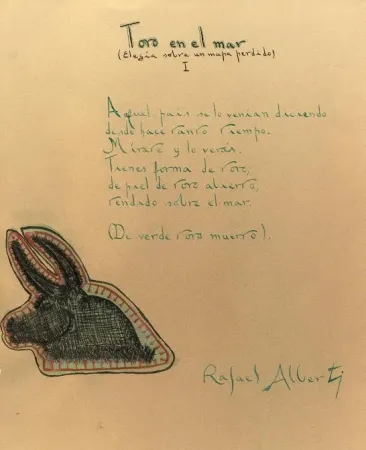 Toro en el mar
(Elegía sobre un mapa perdido)
I
Aquel país se lo venían diciendo
desde hace tanto tiempo.
Mírate y lo verás.
Tienes forma de toro,
de piel de toro abierto,
tendido sobre el mar.
(De verde toro muerto).
Rafael Alberti